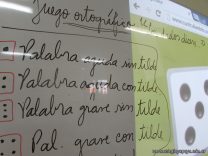 Juego ortográfico
Palabra aguda sin tilde
Palabra aguda con tilde
Palabra grave sin tilde
Pal. grave con tilde